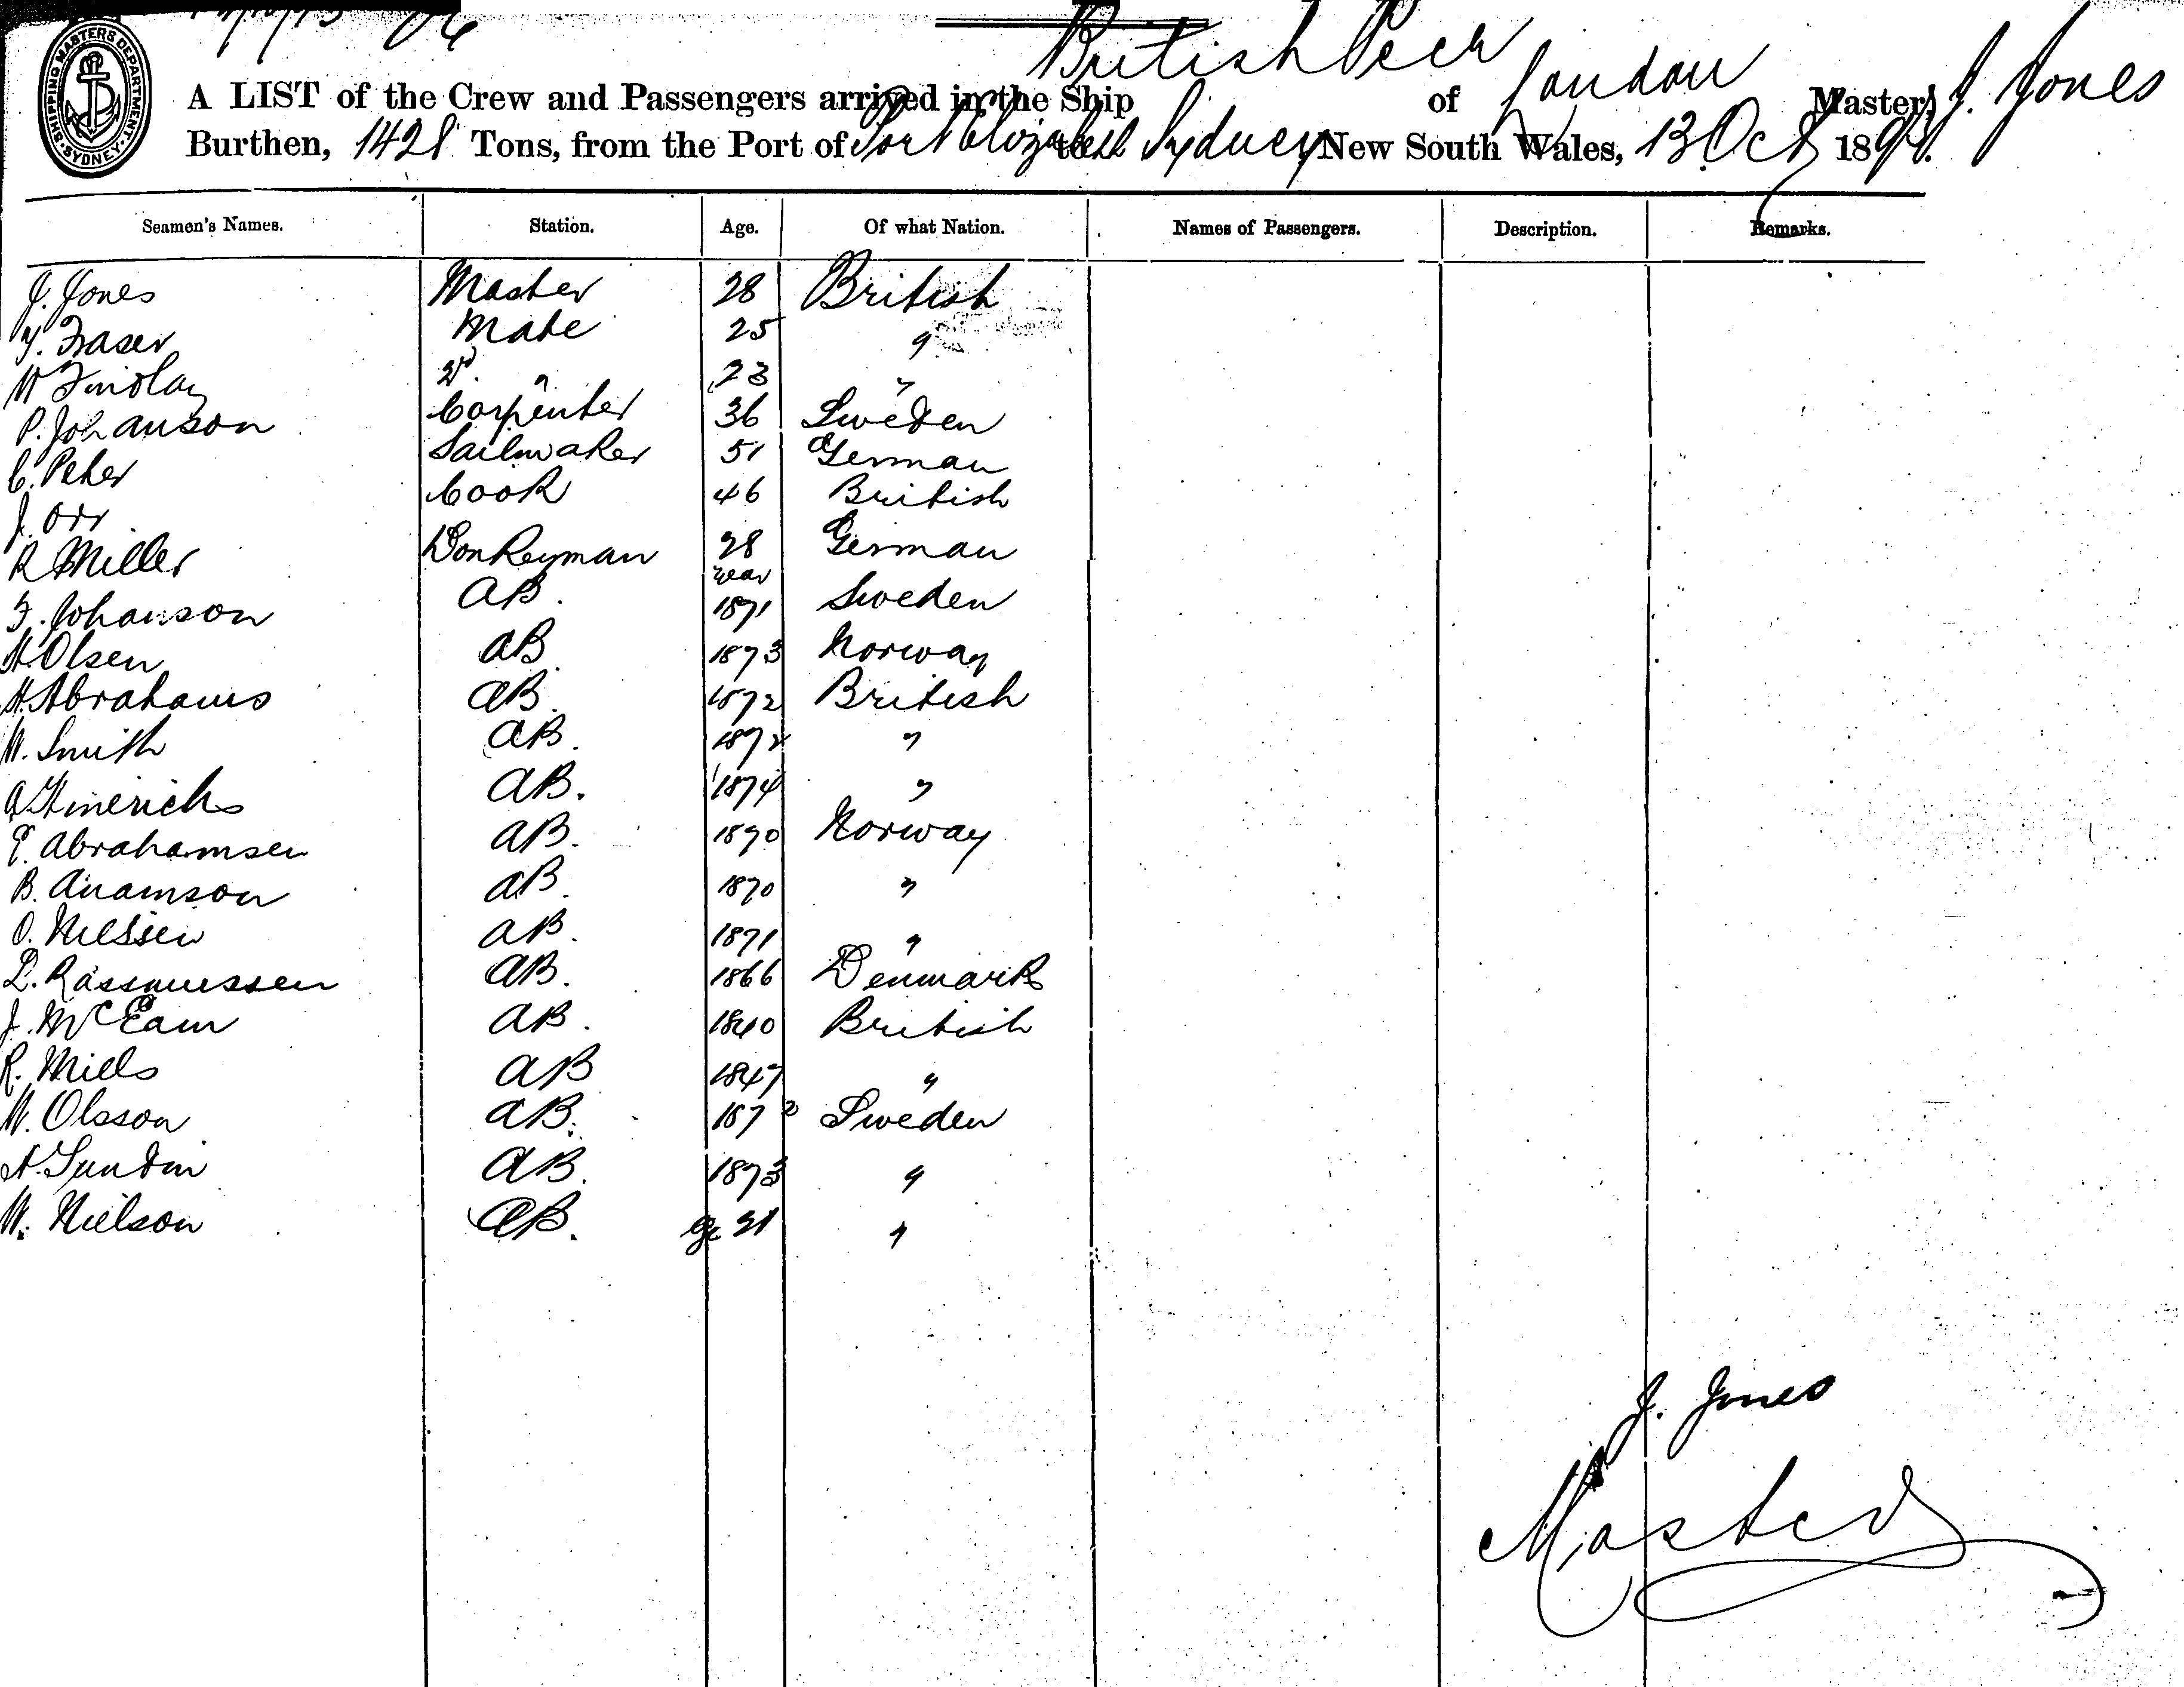 SHIPPING MASTERS DEPARTMENT SYDNEY
British Peer London J. Jones
A LIST of the Crew and Passengers arrived in the Ship of Master,
Burthen, 1428 Tons, from the Port of Port Elizabeth to Sydney New South Wales, 13 Oct 189
Seamen's Names. Station. Age. Of what Nation. Names of Passengers. Description. Remarks.
J. Jones Master 28 British
Y. Fraser Mate 25 "
W Findlay 2nd. " 23 "
P. Johanson Carpenter 36 Sweden
C. Peter Sailmaker 51 German
J. Orr Cook 46 British
R Miller Donkeyman 28 German
year
F. Johanson AB. 1871 Sweden
A. Olsen AB. 1873 Norway
A. Abrahams AB. 1872 British
W. Smith AB. 1872 "
A Hinerichs AB. 1874 "
E. Abrahamsen AB. 1870 Norway
B. AB. 1870 "
O. Nilssen AB. 1871 "
L. Rassmussen AB. 1866 Denmark
J. McEam AB. 1840 British
R. Mills AB 1847 "
W. Olsson AB. 1872 Sweden
A. Sundin AB. 1873 "
W. Nielson AB. 21 "
J. Jones
Master